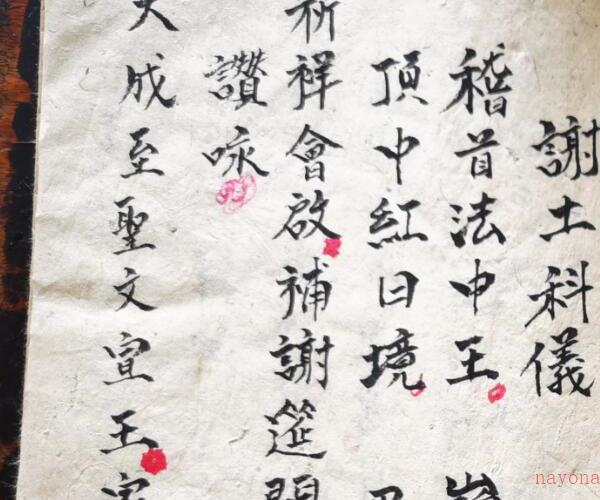 謝土科儀
稽首法中王
頂中紅日境
祈祥會啟補謝筵開
讚咏
大成至聖文宣王
nayona